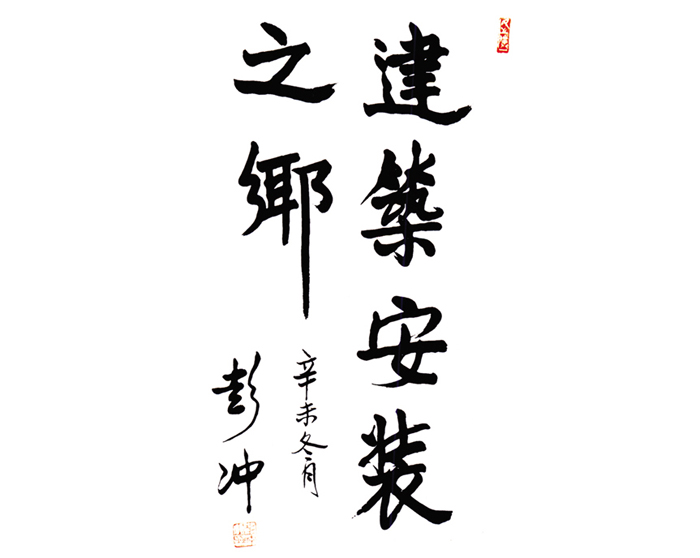 建築安装
之鄉
辛未冬月
彭冲